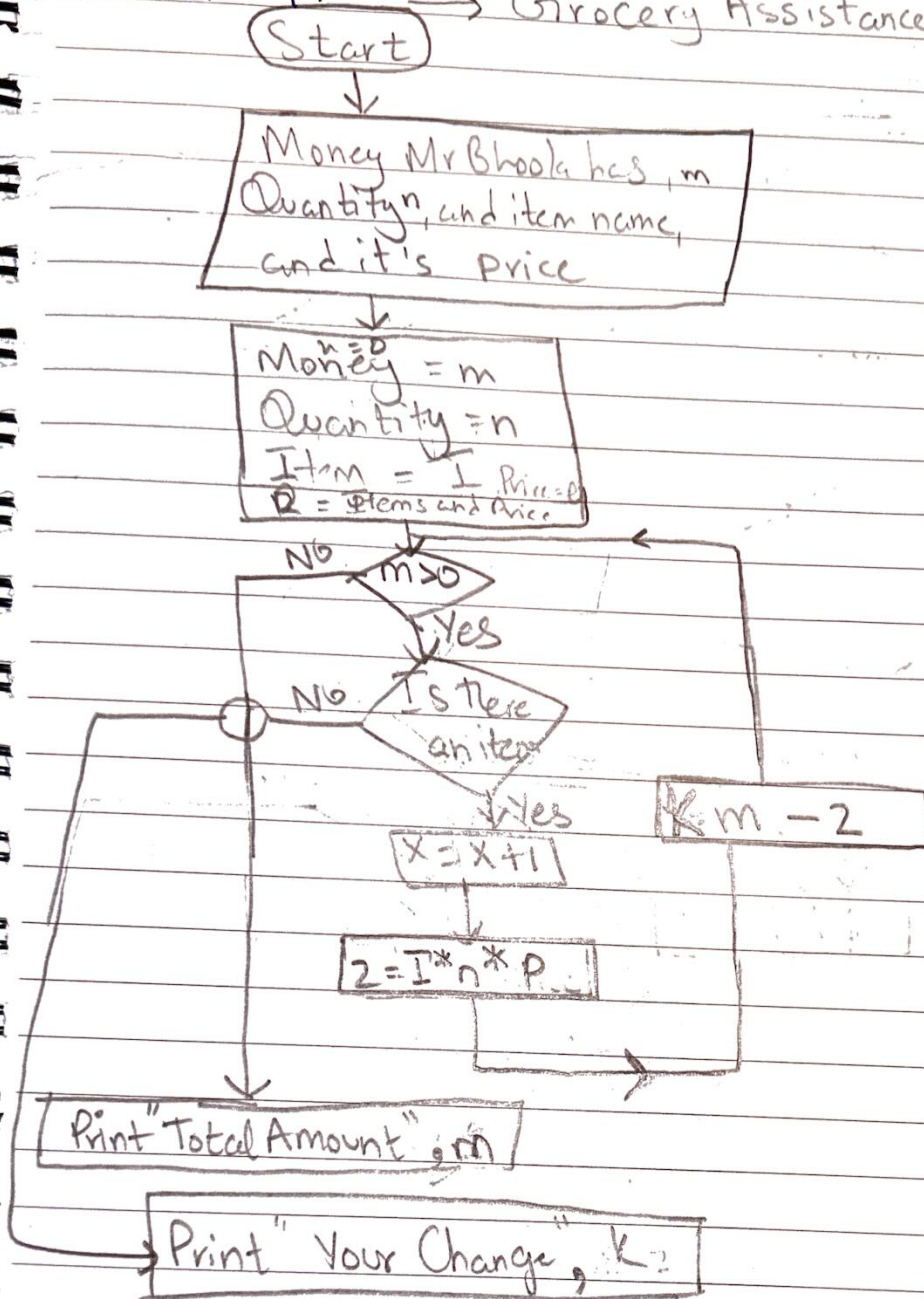 → Grocery Assistance
Start
Money Mr Bhoola has, m
Quantity n, and item name,
and it's price
n = 0
Money = m
Quantity = n
Item = I Price = P
2 = Items and Price
m>0
NO
Yes
Is there
an item
NO
Yes
K m - 2
X = X+1
2 = I * n * P
Print "Total Amount", m
Print "Your Change", K